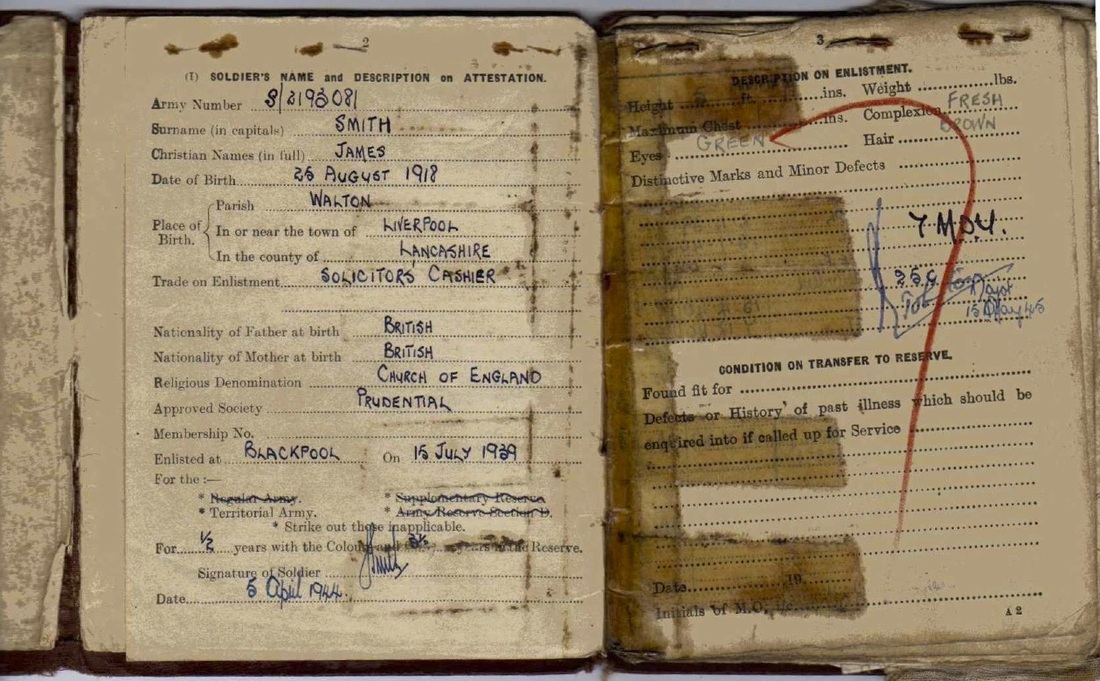 2
(I) SOLDIER'S NAME and DESCRIPTION on ATTESTATION.
Army Number S/2193081
Surname (in capitals) SMITH
Christian Names (in full) JAMES
Date of Birth AUGUST 1918
Place of Birth.
Parish WALTON
In or near the town of LIVERPOOL
In the county of LANCASHIRE
Trade on Enlistment SOLICITORS CASHIER
Nationality of Father at birth BRITISH
Nationality of Mother at birth BRITISH
Religious Denomination CHURCH OF ENGLAND
Approved Society PRUDENTIAL
Membership No.
Enlisted at BLACKPOOL On 15 JULY 1939
For the :—
* Regular Army. * Supplementary Reserve
* Territorial Army. * Army Reserve Section D.
* Strike out those inapplicable.
For ½ years with the Colours and 3½ years in the Reserve.
Signature of Soldier JSmith
Date April 1944
3
DESCRIPTION ON ENLISTMENT.
Height 5 ft. ins. Weight lbs.
Maximum Chest ins. Complexion FRESH
Eyes GREEN Hair BROWN
Distinctive Marks and Minor Defects
Major
15 May 45
CONDITION ON TRANSFER TO RESERVE.
Found fit for
Defects or History of past illness which should be
enquired into if called up for Service
Date 19
Initials of M.O.
A 2